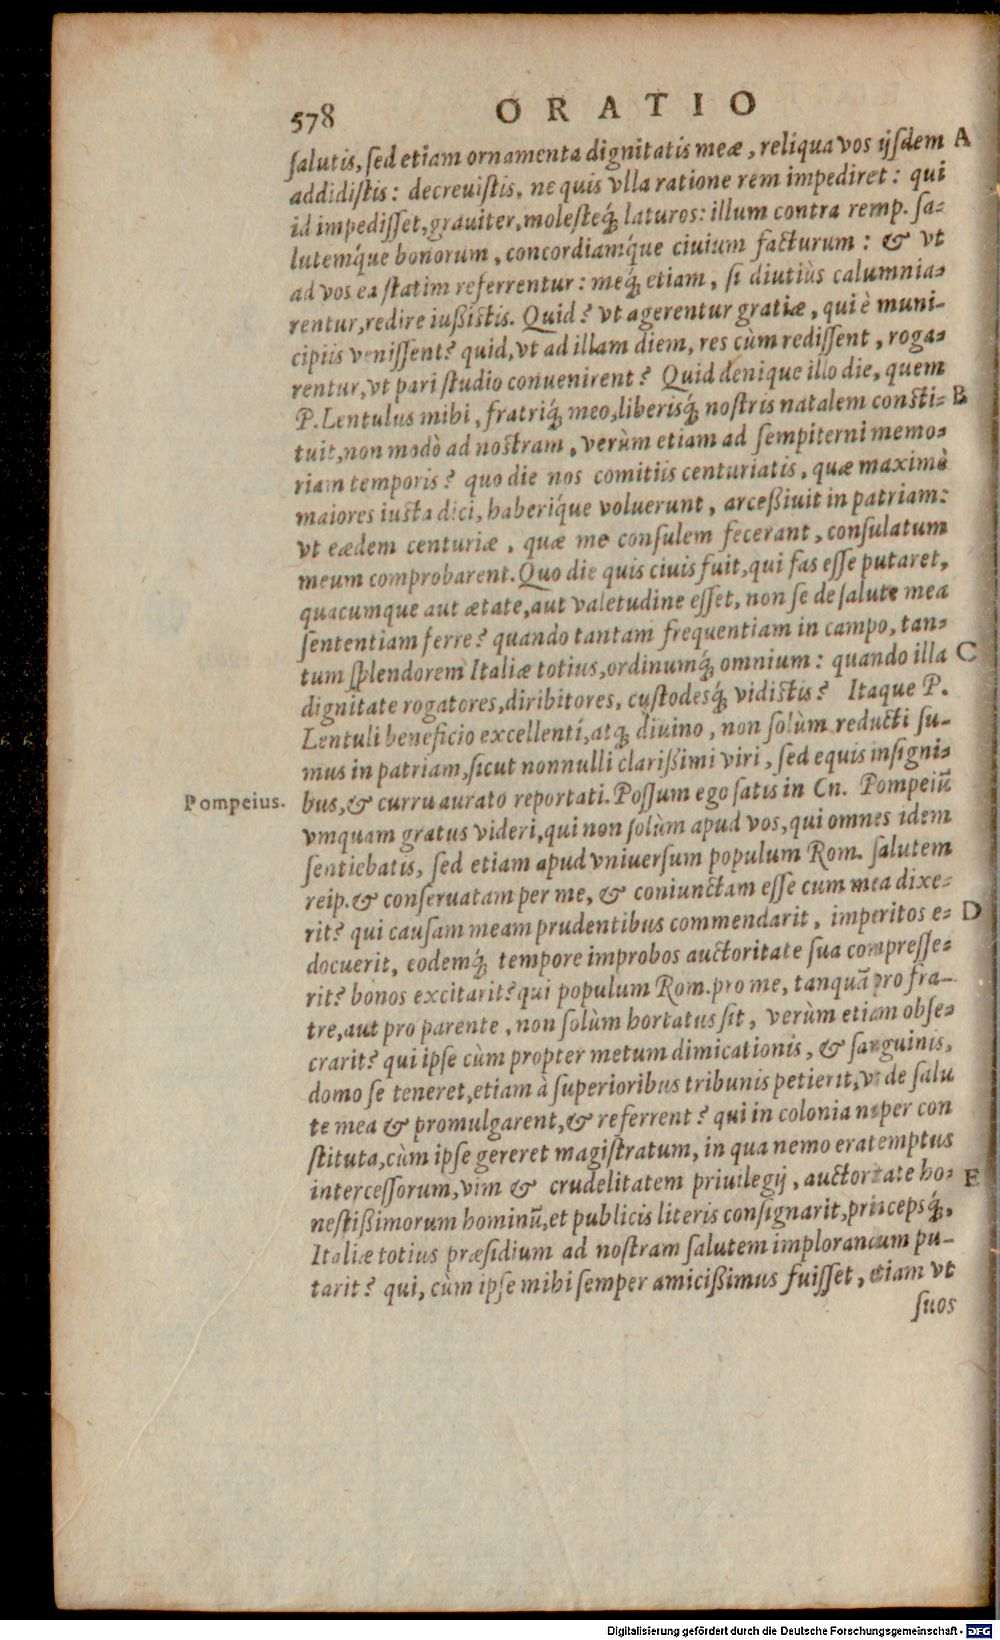 578 ORATIO
salutis, sed etiam ornamenta dignitatis meæ, reliqua vos ijsdem A
addidistis: decreuistis, ne quis vlla ratione rem impediret: qui
id impedisset, grauiter, molesteq́; laturos: illum contra remp. sa-
lutemq́ue bonorum, concordiamq́ue ciuium facturum: & vt
ad vos ea statim referrentur: meq́; etiam, si diutiùs calumnia-
rentur, redire iußistis. Quid? vt agerentur gratiæ, qui è muni-
cipiis venissent? quid, vt ad illam diem, res cùm redissent, roga-
rentur, vt pari studio conuenirent? Quid denique illo die, quem
P. Lentulus mihi, fratriq́; meo, liberisq́; nostris natalem consti- B
tuit, non modò ad nostram, verùm etiam ad sempiterni memo-
riam temporis? quo die nos comitiis centuriatis, quæ maximè
maiores iusta dici, haberiq́ue voluerunt, arceßiuit in patriam:
vt eædem centuriæ, quæ me consulem fecerant, consulatum
meum comprobarent. Quo die quis ciuis fuit, qui fas esse putaret,
quacumque aut ætate, aut valetudine esset, non se de salute mea
sententiam ferre? quando tantam frequentiam in campo, tan-
tum splendorem Italiæ totius, ordinumq́; omnium: quando illa C
dignitate rogatores, diribitores, custodesq́; vidistis? Itaque P.
Lentuli beneficio excellenti, atq; diuino, non solùm reducti su-
mus in patriam, sicut nonnulli clarißimi viri, sed equis insigni-
Pompeius. bus, & curru aurato reportati. Possum ego satis in Cn. Pompeiũ
vmquam gratus videri, qui non solùm apud vos, qui omnes idem
sentiebatis, sed etiam apud vniuersum populum Rom. salutem
reip. & conseruatam per me, & coniunctam esse cum mea dixe-
rit? qui causam meam prudentibus commendarit, imperitos e- D
docuerit, eodemq́; tempore improbos auctoritate sua compresse-
rit? bonos excitarit? qui populum Rom. pro me, tanquã pro fra-
tre, aut pro parente, non solùm hortatus sit, verùm etiam obse-
crarit? qui ipse cùm propter metum dimicationis, & sanguinis,
domo se teneret, etiam à superioribus tribunis petierit, vt de salu
te mea & promulgarent, & referrent? qui in colonia nuper con
stituta, cùm ipse gereret magistratum, in qua nemo erat emptus
intercessorum, vim & crudelitatem priuilegij, auctoritate ho- E
nestißimorum hominũ, et publicis literis consignarit, princepsq́;
Italiæ totius præsidium ad nostram salutem implorandum pu-
tarit? qui, cùm ipse mihi semper amicißimus fuisset, etiam vt
suos
Digitalisierung gefördert durch die Deutsche Forschungsgemeinschaft - DFG